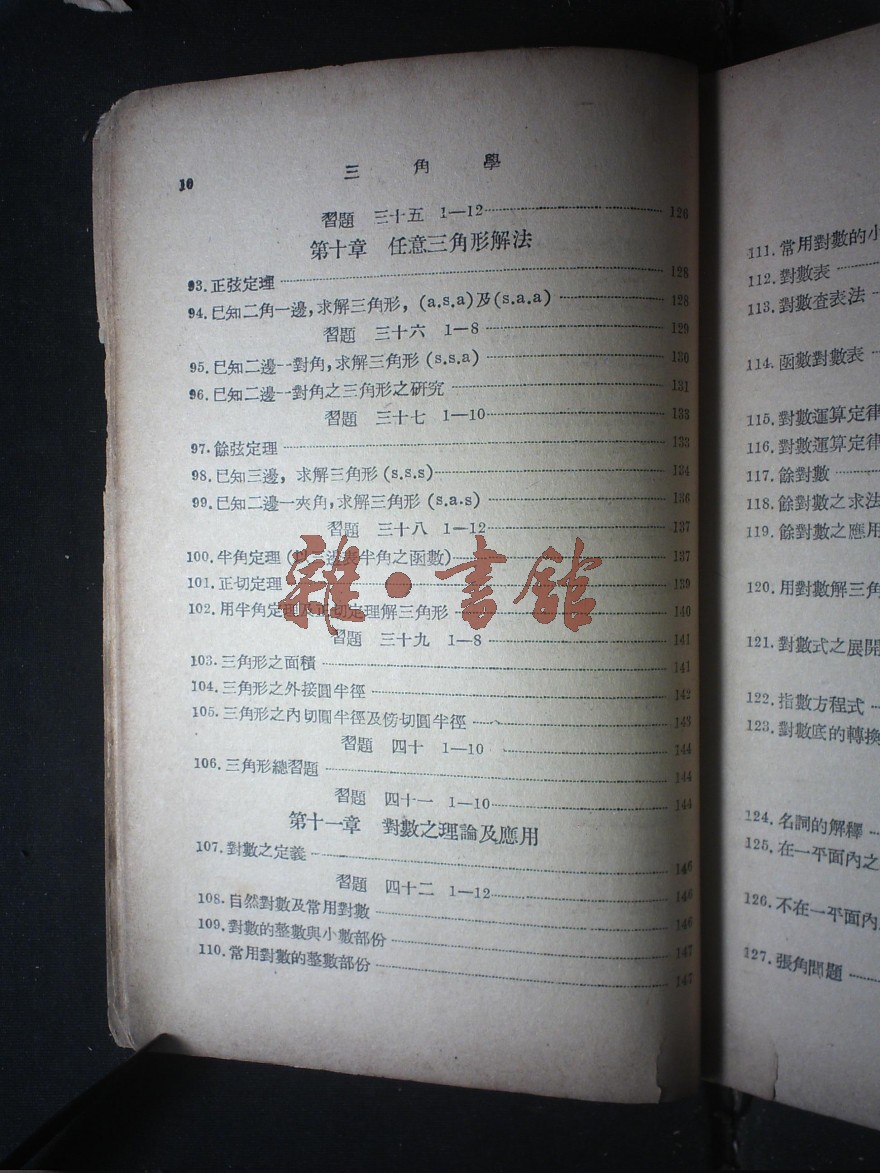 10
三角學
習題 三十五 1—12 126
第十章 任意三角形解法
93.正弦定理 128
94.已知二角一邊,求解三角形, (a.s.a)及(s.a.a) 128
習題 三十六 1—8 129
95.已知二邊一對角,求解三角形 (s.s.a) 130
96.已知二邊一對角之三角形之研究 131
習題 三十七 1—10 133
97.餘弦定理 133
98.已知三邊, 求解三角形 (s.s.s) 134
99.已知二邊一夾角,求解三角形 (s.a.s) 136
習題 三十八 1—12 137
100.半角定理 (以三邊表半角之函數) 137
101.正切定理 139
102.用半角定理及正切定理解三角形 140
習題 三十九 1—8 141
103.三角形之面積 141
104.三角形之外接圓半徑 142
105.三角形之內切圓半徑及傍切圓半徑 143
習題 四十 1—10 144
106.三角形總習題 144
習題 四十一 1—10 144
第十一章 對數之理論及應用
107.對數之定義 146
習題 四十二 1—12 146
108.自然對數及常用對數 146
109.對數的整數與小數部份 147
110.常用對數的整數部份 147
雜·書館
111.常用對數的小
112.對數表
113.對數查表法
114.函數對數表
115.對數運算定律
116.對數運算定律
117.餘對數
118.餘對數之求法
119.餘對數之應用
120.用對數解三角
121.對數式之展開
122.指數方程式
123.對數底的轉換
124.名詞的解釋
125.在一平面內之
126.不在一平面內
127.張角問題